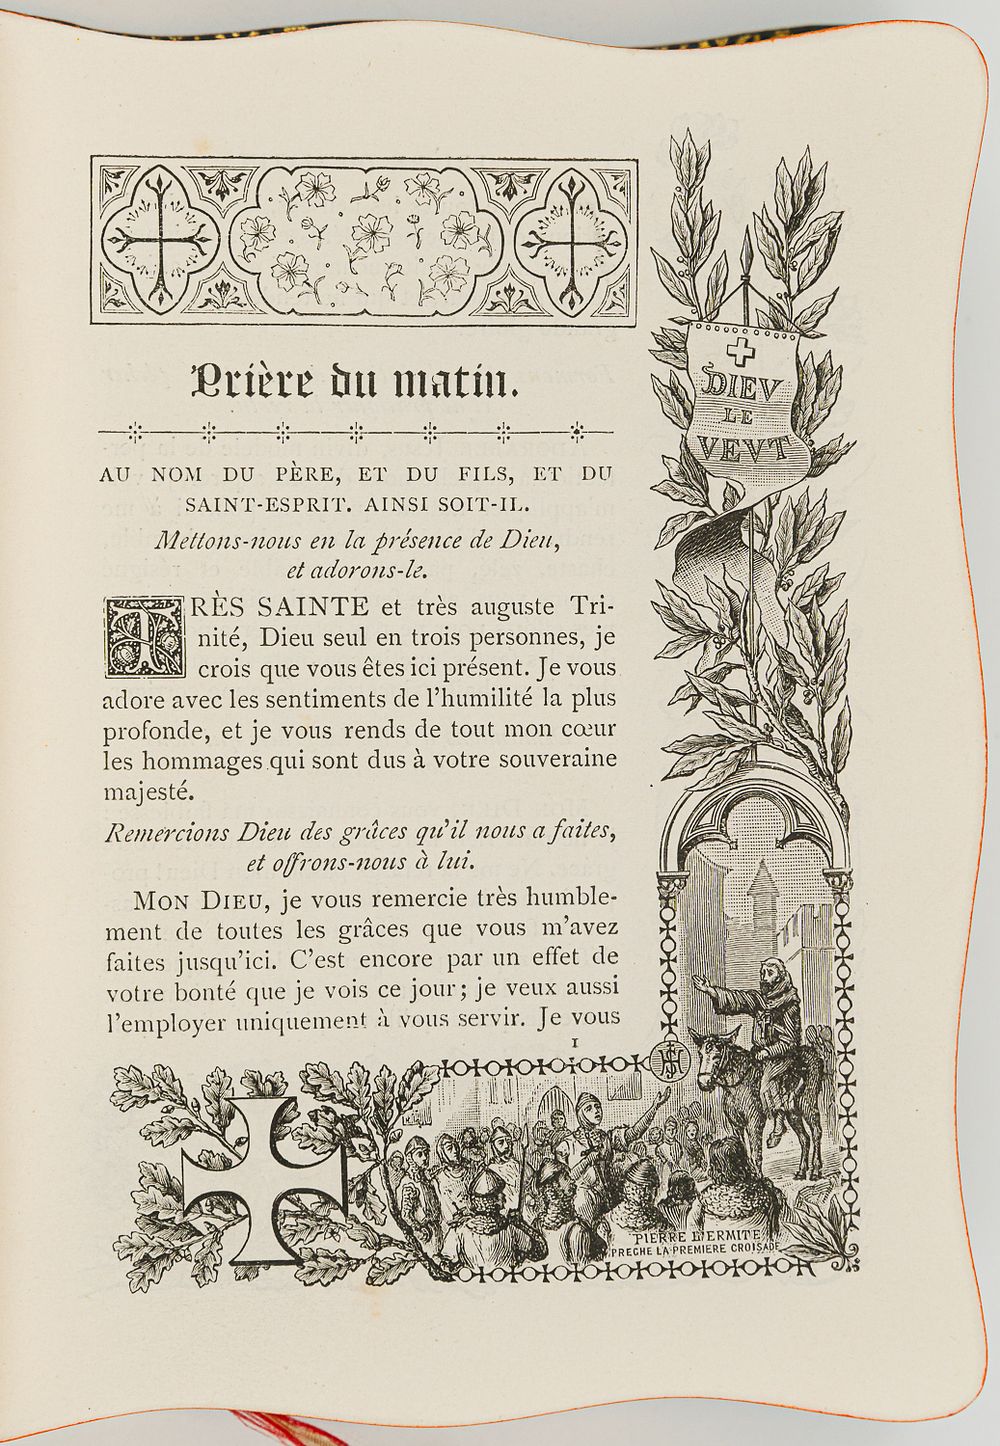 Prière du matin.
AU NOM DU PÈRE, ET DU FILS, ET DU
SAINT-ESPRIT. AINSI SOIT-IL.
Mettons-nous en la présence de Dieu,
et adorons-le.
TRÈS SAINTE et très auguste Tri-
nité, Dieu seul en trois personnes, je
crois que vous êtes ici présent. Je vous
adore avec les sentiments de l'humilité la plus
profonde, et je vous rends de tout mon cœur
les hommages qui sont dus à votre souveraine
majesté.
Remercions Dieu des grâces qu'il nous a faites,
et offrons-nous à lui.
MON DIEU, je vous remercie très humble-
ment de toutes les grâces que vous m'avez
faites jusqu'ici. C'est encore par un effet de
votre bonté que je vois ce jour; je veux aussi
l'employer uniquement à vous servir. Je vous
1
DIEV
LE
VEVT
IHS
PIERRE L'ERMITE
PRECHE LA PREMIERE CROISADE